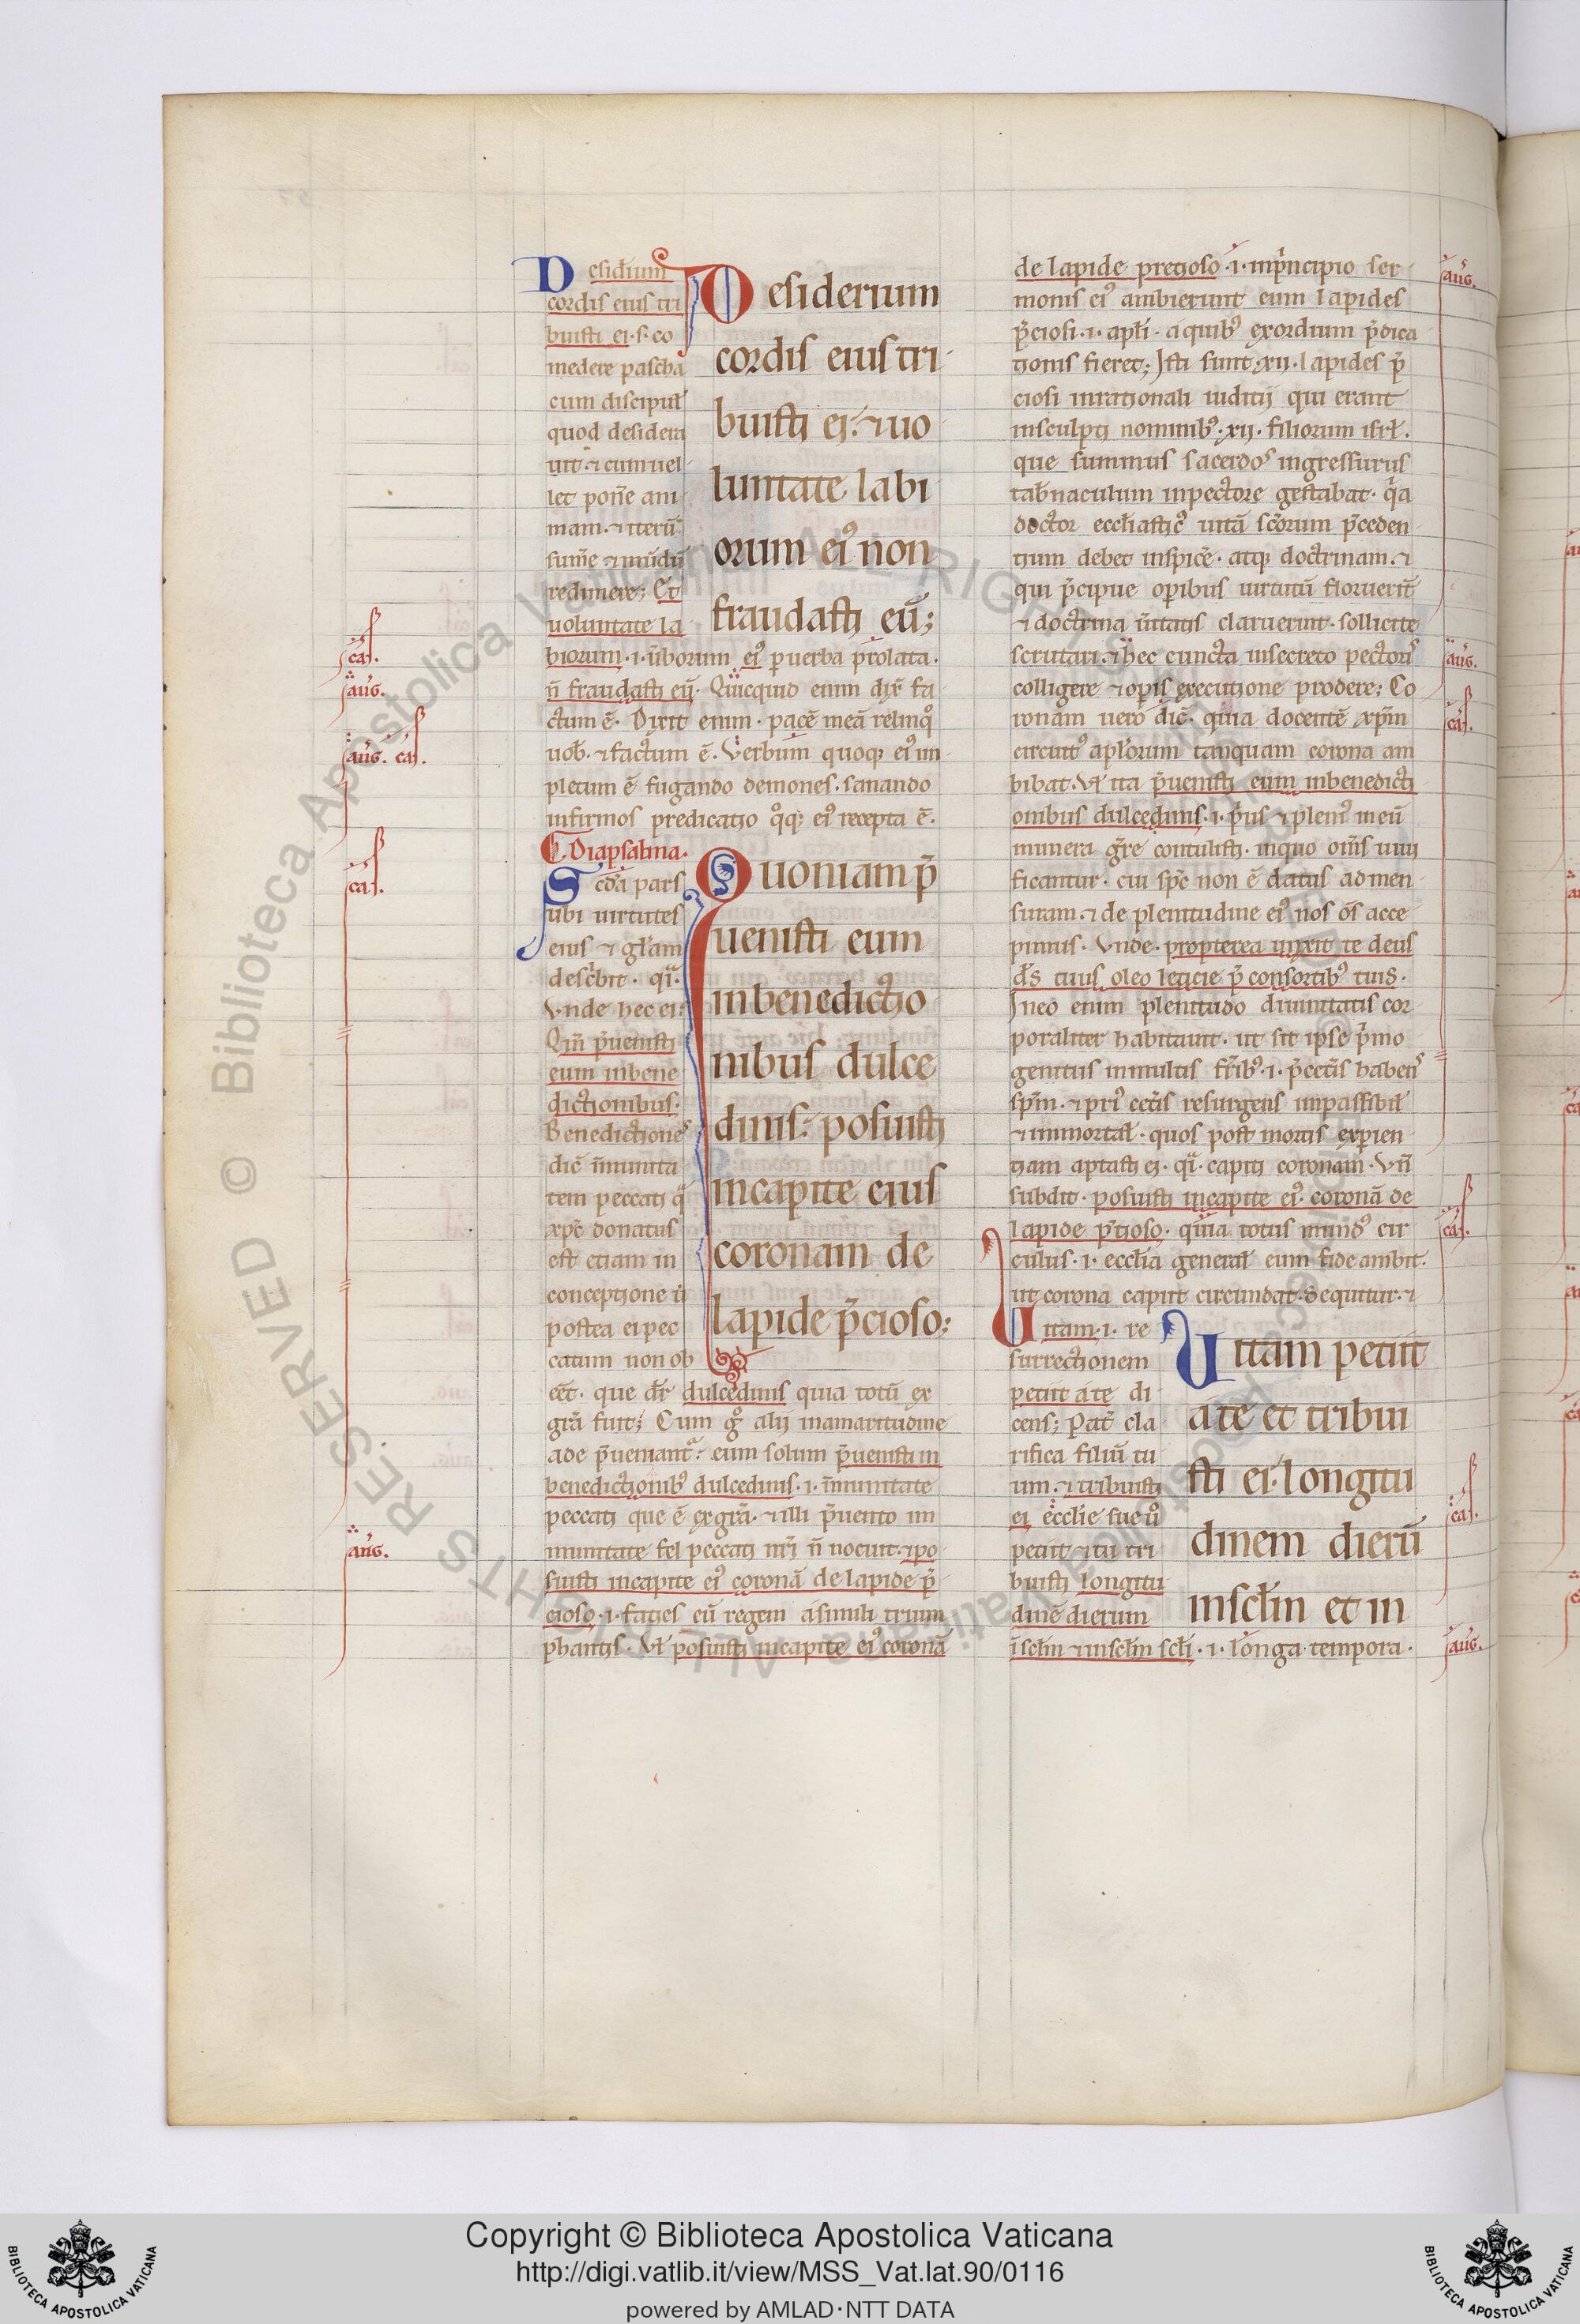 Desid̕ium
cordis eius tri
buisti ei·s·co
medere pascha
cum discipul̕
quod desidera
uit·⁊ cum uel
let pon̕e ani
mam·⁊ iterū
sum̕e ⁊ mūdū
redimere; Et
uoluntate la
biorum·i·ũborum eiꝰ ꝑ uerba p̕rolata·
ñ fraudasti eū· Quicquid enim dix̕ fa
ctum ē· Dixit enim· pacē meā relinq̊
uob̕·⁊ factum ē· Verbum quoqꝫ eiꝰ im
pletum ē fugando demones·sanando
infirmos predicatio q̊qꝫ eiꝰ recepta ē·
Desiderium
cordis eius tri
buisti ei·⁊ uo
luntate labi
orum eiꝰ non
fraudasti eū;
Diapsalma·
Scd̕a pars
ubi uirtutes
eius ⁊ gl̕am
desc̕bit· q̃·
Vnde hec ei:
Qm̄ p̃uenisti
eum in bene
dictionibus·
Benedictiones
dic̄ ĩmunita
tem peccati q̃
xp̄c donatus
est etiam in
conceptione ũ
postea ei pec
catum non ob
eēt· que dr̄ dulcedinis quia totū ex
gr̃a fuit; Cum g̊ alij in amaritudine
ade p̃ueniant̃· eum solum p̃uenisti in
benedictionibꝰ dulcedinis·i·ĩmunitate
peccati que ē ex gr̃a·⁊ illi p̃uento im
munitate fel peccati nr̄i ñ nocuit·⁊ po
suisti in capite eiꝰ coronā de lapide p̃
cioso·i·facies eū regem a simili trium
phantis· Vl̕ posuisti in capite eiꝰ coronā
Quoniam p̃
uenisti eum
in benedictio
nibus dulce
dinis· posuisti
in capite eius
coronam de
lapide p̃cioso;
de lapide pretioso·i·in p̃ncipio ser
monis eiꝰ ambierunt eum lapides
p̃ciosi·i·apl̕i·a quibꝰ exordium p̃dica
tionis fieret; Isti sunt·xij·lapides p̃
ciosi in rationali iudicij qui erant
insculpti nominibꝰ·xij·filiorum isrl̕·
que summus sacerdos ingressurus
tab̕naculum in pectore gestabat· q̃a
doctor eccl̕iasticꝰ uitā sc̄orum p̃ceden
tium debet inspic̕e· atqꝫ doctrinam·⁊
qui p̃cipue oꝑibus uirtutū floruerīt
⁊ doctrina ũitatis claruerint·sollicite
scrutari·⁊ hec cuncta in secreto pectoris
colligere ⁊ oꝑis executione prodere; Co
ronam uero dic̄· quia docentē xp̄m
circuitꝰ apl̕orum tanquam corona am
bibat· Vl̕ ita p̃uenisti eum in benedicti
onibus dulcedinis·i·p̃us ⁊ pleniꝰ meū
munera gr̃e contulisti·in quo om̄s uiui
ficantur· cui sp̄c non ē datus ad men
suram·⁊ de plenitudine eiꝰ nos om̄s acce
pimus· Vnde· propterea unxit te deus
d̄s tuus oleo leticie p̃ consortibꝰ tuis·
In eo enim plenitudo diuinitatis cor
poraliter habitauit· ut sit ipse p̃mo
genitus in multis fr̃ibꝰ·i·p̃ cet̕is habens
sp̄m·⁊ pri cet̕is resurgens impassibil̕
⁊ inmortal̕·quos post mortis exꝑien
tiam aptasti ei· q̃· capiti coronam· Vn̄
subdit· posuisti in capite eiꝰ· coronā de
lapide p̃tioso· quia totus mundꝰ cir
culus·i·eccl̕ia general̕ eum fide ambit·
ut corona caput circundat·Sequitur·⁊
Vitam·i·re
surrectionem
petiit a te di
cens; Pat̕ cla
rifica filiū tu
um·⁊ tribuisti
ei eccl̕ie sue ũ
petiit ⁊ tu tri
buisti longitu
dinē dierum
ĩ scl̕m ⁊ in scl̕m scl̕i·i·longa tempora·
Vitam petiit
a te et tribui
sti ei·longitu
dinem dierū
in scl̕m et in
cas.
aug̕.
aug̕. cas.
cas.
aug̕.
aug̕.
aug̕.
cas.
cas.
cas.
aug̕.
© Biblioteca Apostolica Vaticana ALL RIGHTS RESERVED
Copyright © Biblioteca Apostolica Vaticana
http://digi.vatlib.it/view/MSS_Vat.lat.90/0116
powered by AMLAD·NTT DATA
BIBLIOTECA APOSTOLICA VATICANA
BIBLIOTECA APOSTOLICA VATICANA